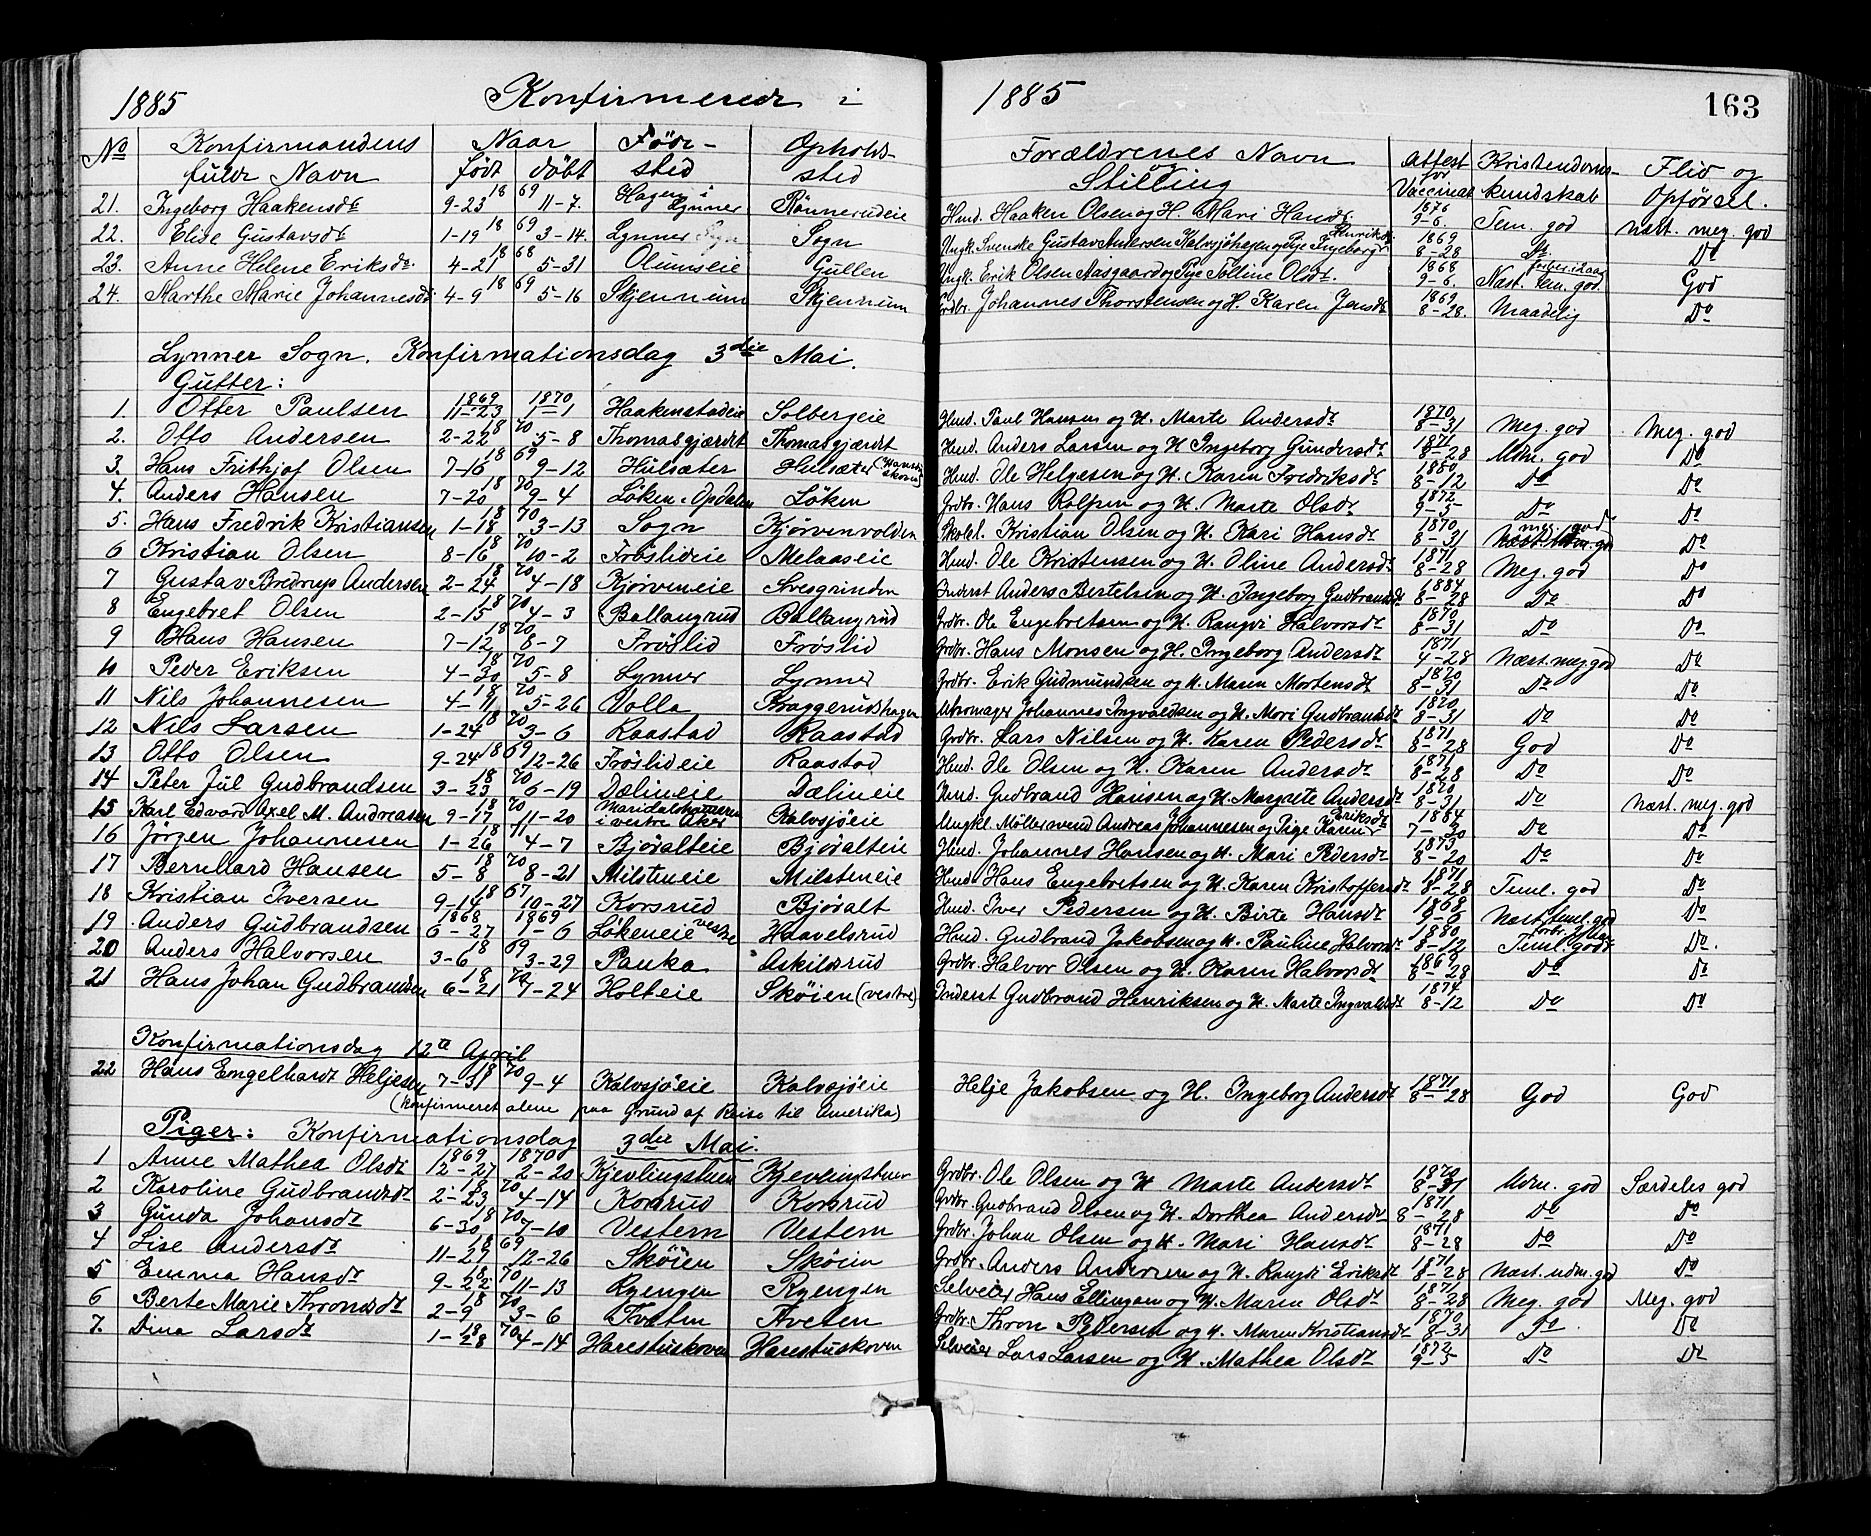 1885 Konfirmerede i 1885 163
No Konfirmandens fulde Navn Naar født døbt Føde-sted Opholds-sted Forældrenes Navn Stilling Attest for Vaccinat Kristendoms-kundskab Flid og Opførsel.
21. Ingeborg Haakensdt 9-23 18 69 11-7. Hagen i Lynner Rønnerudeie Hmd. Haaken Olsen og H. Mari Hansdt. 1876 9-6. Tem. god næst. meg. god
22. Elise Gustavsdt 1-19 18 69 3-14. Lynner Sogn Sogn Ungk. Svenske Gustav Andersen Kalvsjøhagen og Pige Ingeborg Henriksdt 1869 8-28 Do Do
23. Anne Helene Eriksdt. 4-21 18 68 5-31 Olumseie Gullen Ungk. Erik Olsen Aasgaard og Pige Tolline Olsdt. 1868 9-6. Næst. tem. god. God
24. Marthe Marie Johannesdt 4-9 18 69 5-16 Skjennum Skjennum Grdbr. Johannes Thorstensen og H. Karen Jensdt 1869 8-28. Maadelig Do
Lynner Sogn. Konfirmationsdag 3die Mai.
Gutter:
1. Otter Paulsen 1869 11-23 1870 1-1 Haakenstadeie Solbergeie Hmd. Paul Hansen og H. Marte Andersdt 1870 8-31 Meg. god Meg. god
2. Otto Andersen 2-22 18 70 5-8 Thomasgjærdet Thomasgjærdet Hmd. Anders Larsen og H Ingeborg Gundersdt 1871 8-28 Udm. god Do
3. Hans Frithjof Olsen 7-16 18 69 9-12 Hulsæter Hulsæter Hmd. Ole Helgesen og H. Karen Fredriksdt 1880 8-12 Do Do
4. Anders Hansen 7-20 18 70 9-4 Løken, Opdalen Løken Grdbr. Hans Rolfsen og H. Marte Olsdt 1872 9-5 Do Do
5. Hans Fredrik Kristiansen 1-18 18 70 3-13 Sogn Kjørvenvolden Skolel. Kristian Olsen og H. Kari Hansdt 1870 8-31 meg. god Do
6 Kristian Olsen 8-16 18 70 10-2 Frøslideie Melaaseie Hmd. Ole Kristensen og H. Oline Andersdt 1871 8-28 Meg. god Do
7 Gustav Bredrup Andersen 2-24 18 70 4-18 Kjørveneie Svesgrinden Inderst Anders Bertelsen og H. Ingeborg Gudbrandsdt 1884 8-28 Do Do
8 Engebret Olsen 2-15 18 70 4-3 Ballangrud Ballangrud Grdbr. Ole Engebretsen og H. Rangdi Halvorsdt 1870 8-31 Do Do
9 Hans Hansen 7-12 18 70 8-7 Frøslid Frøslid Grdbr. Hans Monsen og H. Ingeborg Andersdt 1871 4-28 Næst. meg. god Do
10 Peder Eriksen 4-30 18 70 5-8 Lynner Lynner Grdbr. Erik Gudmundsen og H. Maren Mortensdt 1870 8-31 Do Do
11 Nils Johannesen 4-11 18 70 5-26 Volla Braggerudshagen Uhrmager Johannes Ingvaldsen og H. Mari Gudbrandsdt 1870 8-31 Do Do
12 Nils Larsen 1-24 18 70 3-6 Raastad Raastad Grdbr. Lars Nilsen og H. Karen Pedersdt 1871 8-28 God Do
13 Otto Olsen 9-24 18 69 12-26 Frøslideie Raastad Hmd. Ole Olsen og H. Karen Andersdt 1871 8-28 Do Do
14 Peter Jul Gudbrandsen 3-23 18 70 6-19 Dælineie Dælineie Hmd. Gudbrand Hansen og H. Margrete Andersdt 1870 8-31 Do næst. meg. god
15 Karl Edvard Axel M. Andreasen 9-17 18 70 11-20 Maridalshammeren i vestre Aker Kalvsjøeie Ungkl. Møllersvend Andreas Johannesen og Pige Karen Eriksdt 1884 7-30 Do Do
16 Jørgen Johannesen 1-26 18 71 4-7 Bjøralteie Bjøralteie Hmd. Johannes Hansen og H. Mari Pedersdt 1873 8-20 Do Do
17 Bernhard Hansen 5-8 18 70 8-21 Milsteneie Milsteneie Hmd. Hans Engebretsen og H. Karen Kristoffersdt 1871 8-28 Teml. god Do
18 Kristian Iversen 9-14 18 67 10-27 Korsrud Bjøralt Hmd. Iver Pedersen og H. Birte Hansdt 1868 9-6 Næst. teml. god Do
19 Anders Gudbrandsen 1868 6-27 1869 1-6 Løkeneie vestre Haavelsrud Hmd. Gudbrand Jakobsen og H. Pauline Halvorsdt 1880 8-12 Teml. god Do.
20 Anders Halvorsen 3-6 18 69 3-29 Pauka Askilsrud Grdbr. Halvor Olsen og H. Karen Halvorsdt 1869 8-28 Do Do
21 Hans Johan Gudbrandsen 6-21 18 70 7-24 Holteie Skøien (vestre) Inderst Gudbrand Henriksen og H. Marte Ingvaldsdt 1874 8-12 Do Do
Konfirmationsdag 12te April
22 Hans Engelhardt Heljesen 7-31 18 70 9-4 Kalvsjøeie Kalvsjøeie Helje Jakobsen og H. Ingeborg Andersdt 1871 8-28 God God
(Konfirmeret alene paa Grund af Reise til Amerika)
Piger: Konfirmationsdag 3die Mai.
1 Anne Mathea Olsdt 1869 12-27 1870 2-20 Kjevlingstuen Kjevlingstuen Grdbr. Ole Olsen og H Marte Andersdt 1870 8-31 Udm. god Særdeles god
2 Karoline Gudbrandsdt 2-23 18 70 4-14 Korsrud Korsrud Grdbr. Gudbrand Olsen og H. Dorthea Andersdt 1871 8-28 Do Do
3 Gunda Johansdt 6-30 18 70 7-10 Vestern Vestern Grdbr. Johan Olsen og H. Mari Hansdt 1871 8-28 Do Do
4 Lise Andersdt 11-29 18 69 12-26 Skøien Skøien Grdbr. Anders Andersen og H. Rangdi Eriksdt 1871 8-28 Næst. udm. god Do
5 Emma Hansdt 9-22 18 70 11-13 Ryengen Ryengen Selveier Hans Ellingsen og H. Maren Olsdt 1871 8-28 Meg. god Meg. god
6 Berte Marie Thronsdt 2-9 18 70 3-6 Tveten Tveten Grdbr. Thron Pedersen og H. Maren Kristiansdt 1870 8-31 Do Do
7. Dina Larsdt 1-28 18 70 4-14 Harestuskoven Harestuskoven Selveier Lars Larsen og H. Mathea Olsdt 1872 9-5 Do Do